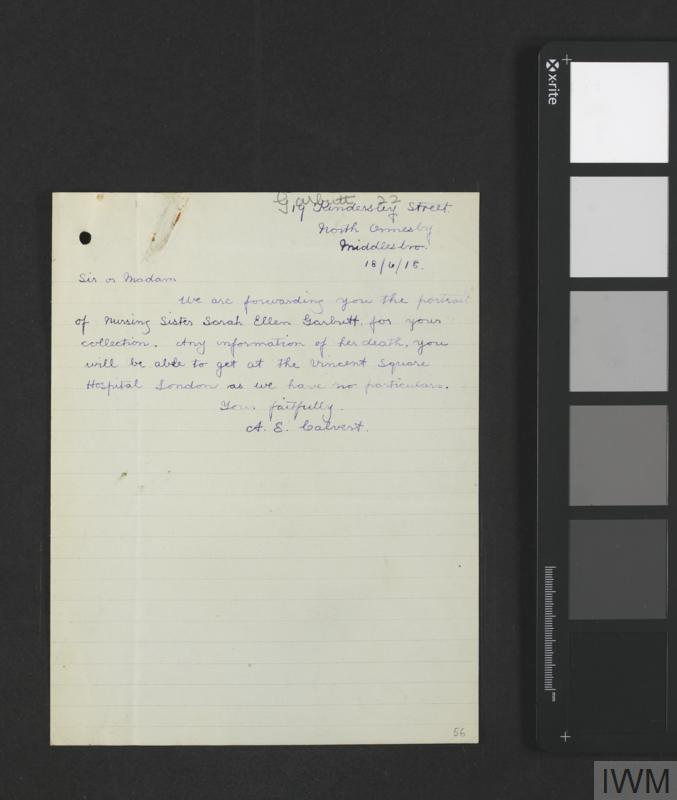 Garbutt 22
19 Kindersley Street.
North Ormesby
Middlesbro.
18/6/18.
Sir or Madam
We are forwarding you the portrait
of Nursing Sister Sarah Ellen Garbutt for your
collection. Any information of her death, you
will be able to get at the Vincent Square
Hospital London as we have no particulars.
Yours faithfully.
A. E. Calvert.
56
x-rite
mm
IWM